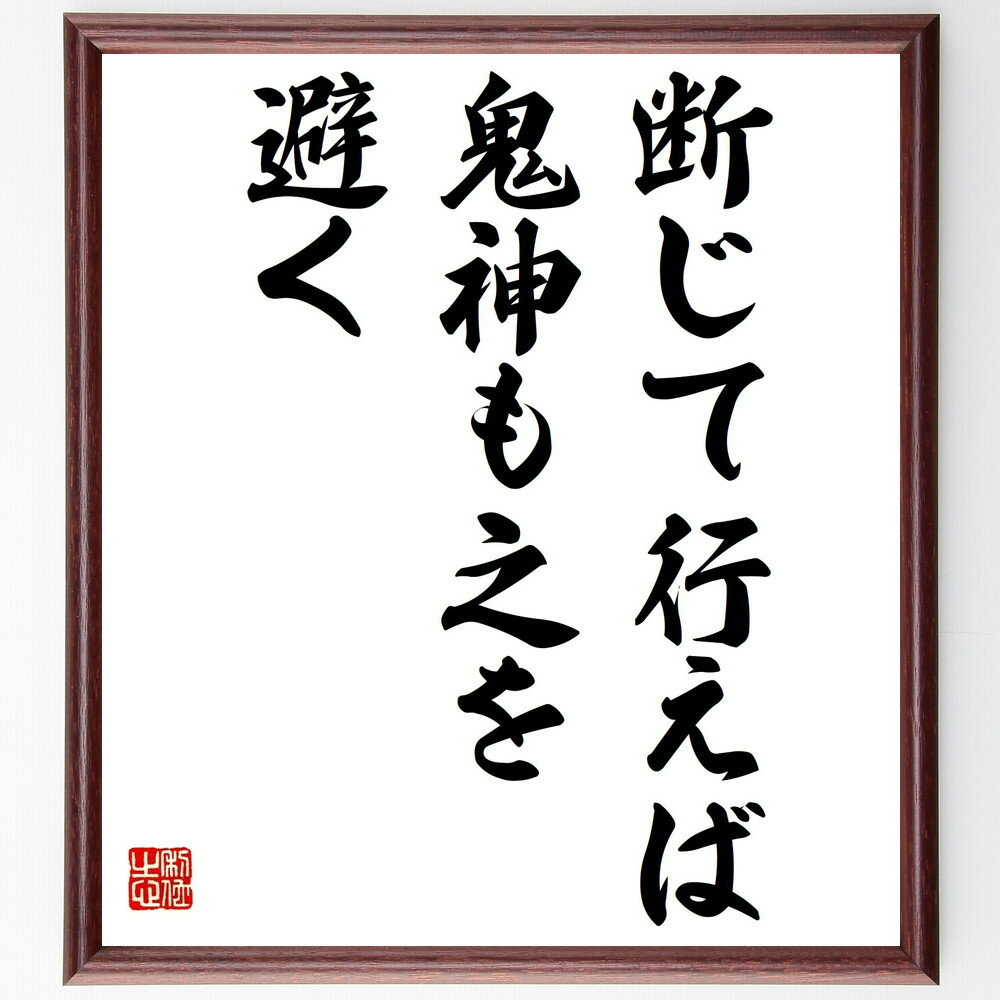 断じて行えば
鬼神も之を
避く